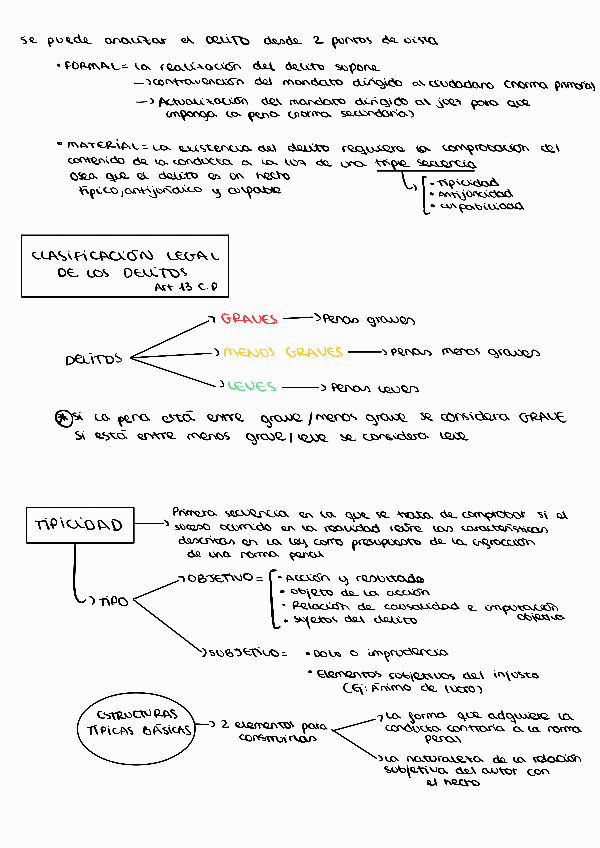 se puede analizar el DELITO desde 2 puntos de vista
• FORMAL = La realización del delito supone
→ contravención del mandato dirigido al ciudadano (norma primaria)
→ Actualización del mandato dirigido al juez para que
imponga la pena (norma secundaria)
• MATERIAL = La existencia del delito requiere la comprobación del
contenido de la conducta a la luz de una triple secuencia
osea que el delito es un hecho
típico, antijurídico y culpable
• Tipicidad
• Antijuricidad
• culpabilidad
CLASIFICACIÓN LEGAL
DE LOS DELITOS
Art 13 C.P
DELITOS
→ GRAVES → Penas graves
→ MENOS GRAVES → penas menos graves
→ LEVES → Penas leves
* Si la pena está entre grave/menos grave se considera GRAVE
Si está entre menos grave/leve se considera leve
TIPICIDAD →
Primera secuencia en la que se trata de comprobar si el
suceso ocurrido en la realidad reúne las características
descritas en la ley como presupuesto de la
de una norma penal
→ TIPO
→ OBJETIVO = • Acción y resultado
• objeto de la acción
• Relación de causalidad e imputación
objetiva
• sujetos del delito
→ SUBJETIVO = • Dolo o imprudencia
• Elementos subjetivos del injusto
(Ej: Ánimo de lucro)
ESTRUCTURAS
TÍPICAS BÁSICAS
→ 2 elementos para
construirlas
→ La forma que adquiere la
conducta contraria a la norma
penal
→ La naturaleza de la relación
subjetiva del autor con
el hecho